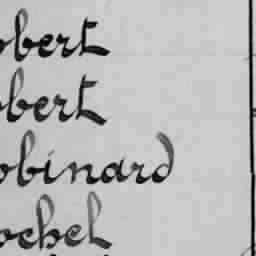 obert
obert
obinard
ochel